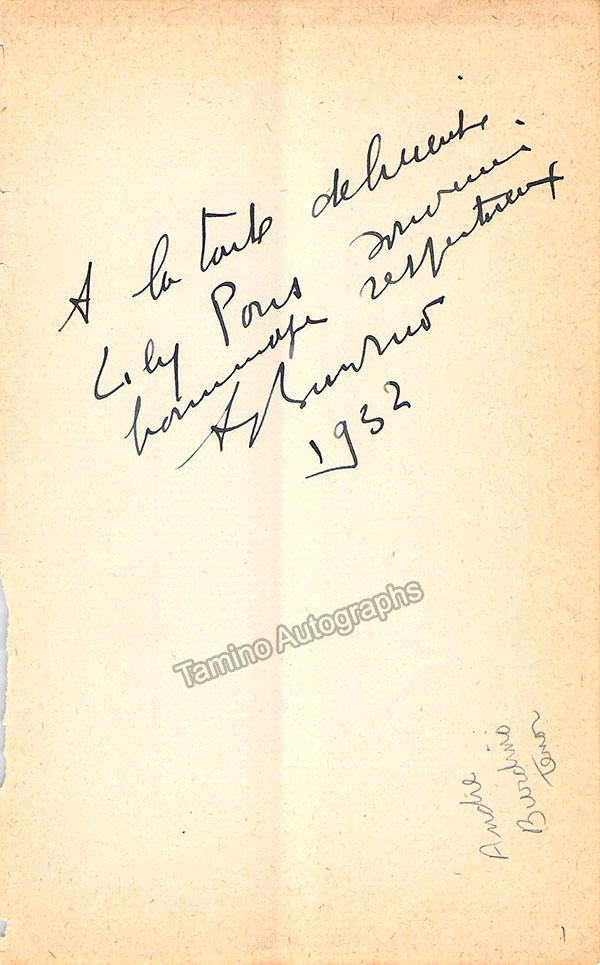 A la toute délicieuse
Lily Pons souvenir
hommage respectueux
A Burdino
1932
Tamino Autographs
André
Burdino
Tenor
1